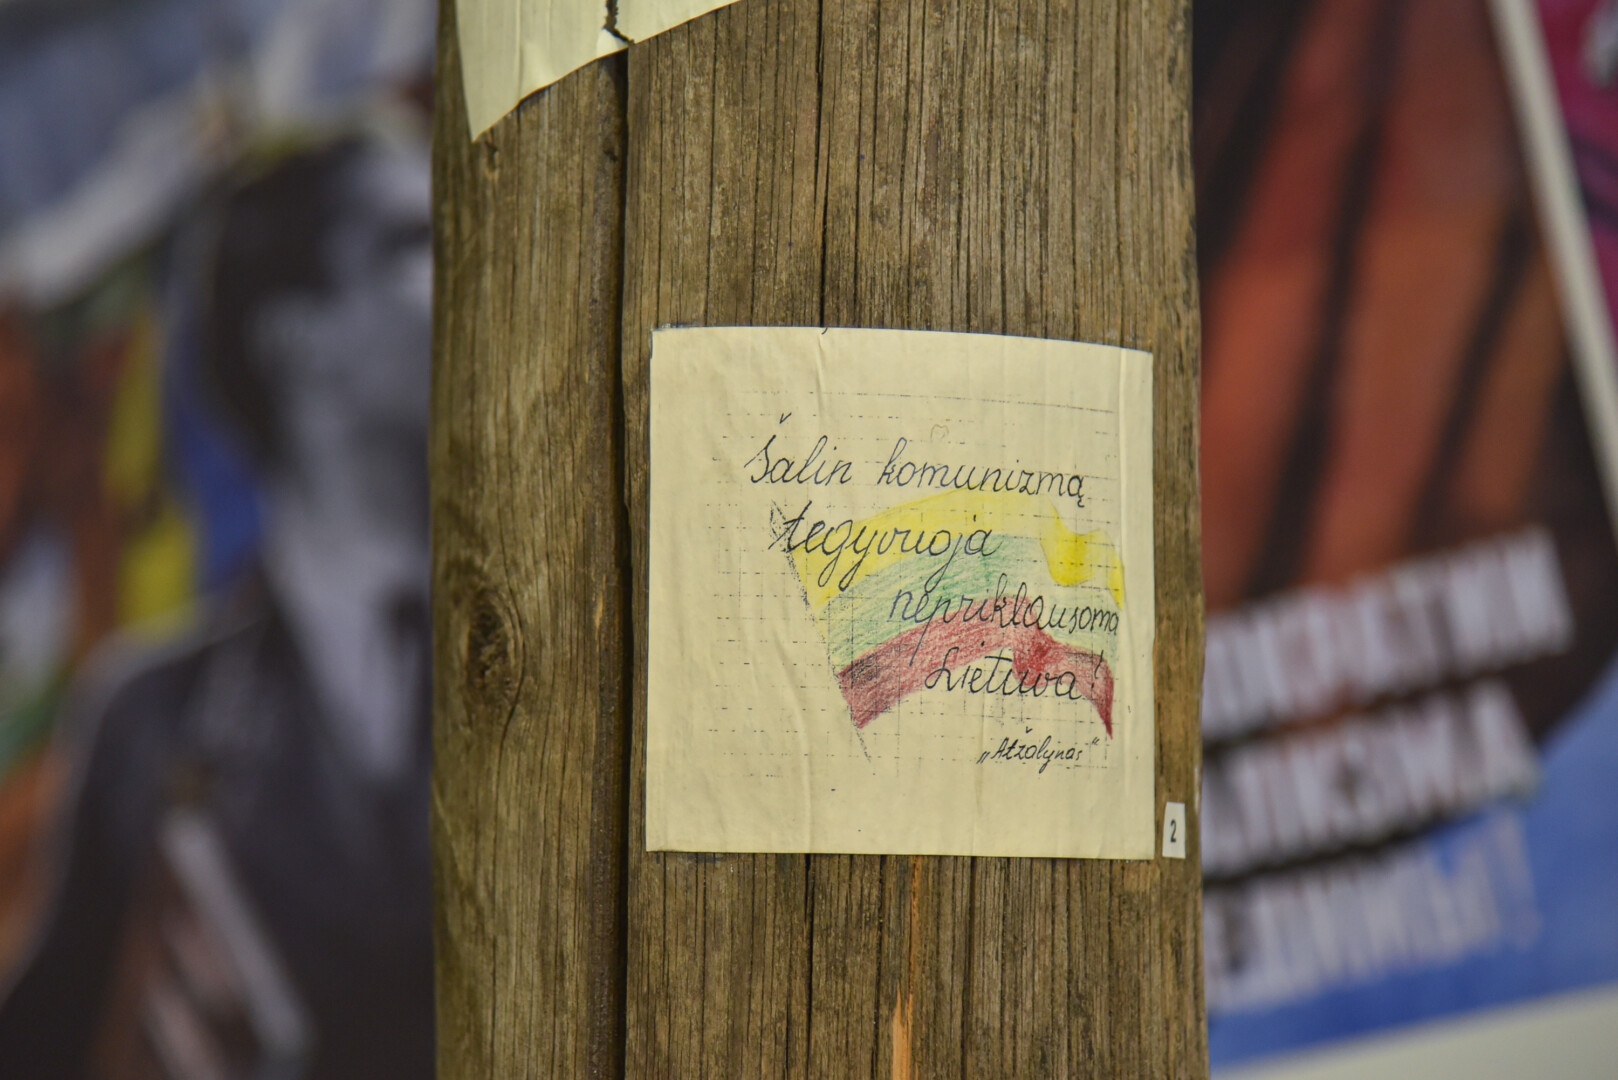 Šalin komunizmą
tegyvuoja
nepriklausoma
Lietuva!
„Atžalynas“
2